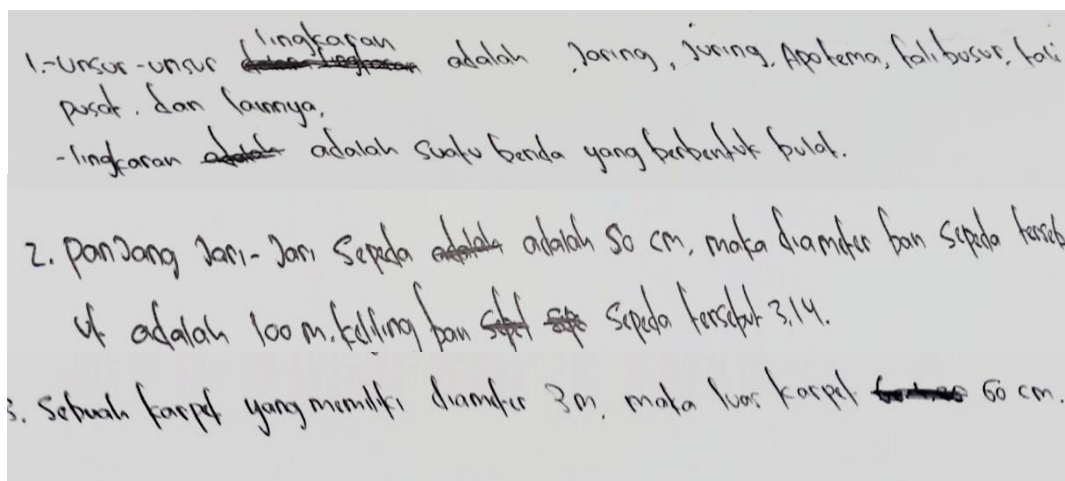 1.-Unsur-unsur lingkaran adalah Jaring, Juring, Apotema, talibusur, tali
pusat. dan lainnya.
-lingkaran adalah suatu benda yang berbentuk bulat.
2. panJang Jari-Jari Sepeda adalah 50 cm, maka diameter ban sepeda terseb
ut adalah 100 m. keliling ban sepeda tersebut 3,14.
3. Sebuah karpet yang memiliki diameter 3m, maka luas karpet 60 cm.